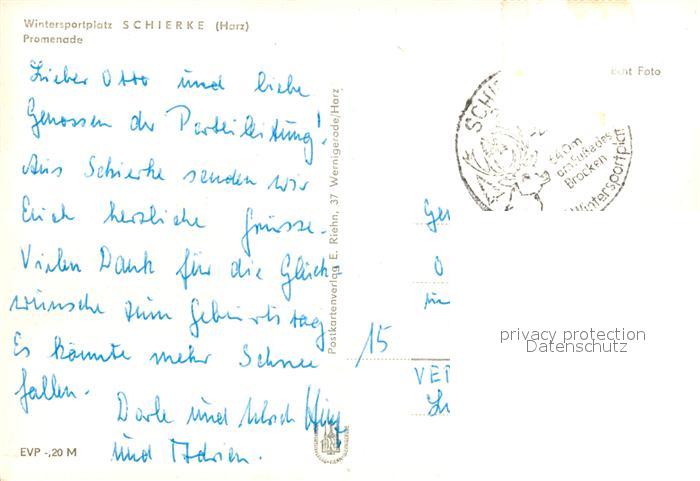 Wintersportplatz SCHIERKE (Harz)
Promenade
Lieber Otto und liebe
Genossen der Parteileitung!
Aus Schierke senden wir
Euch herzliche Grüsse.
Vielen Dank für die Glück-
wünsche zum Geburtstag
Es könnte mehr Schnee
fallen.
und Ulrich
und
EVP -,20 M
Postkartenverlag E. Riehn, 37 Wernigerode/Harz
15
Echt Foto
SCHI
640m
am Fuße des
Brocken
Wintersportplatz
Gen
O
VEB
privacy protection
Datenschutz